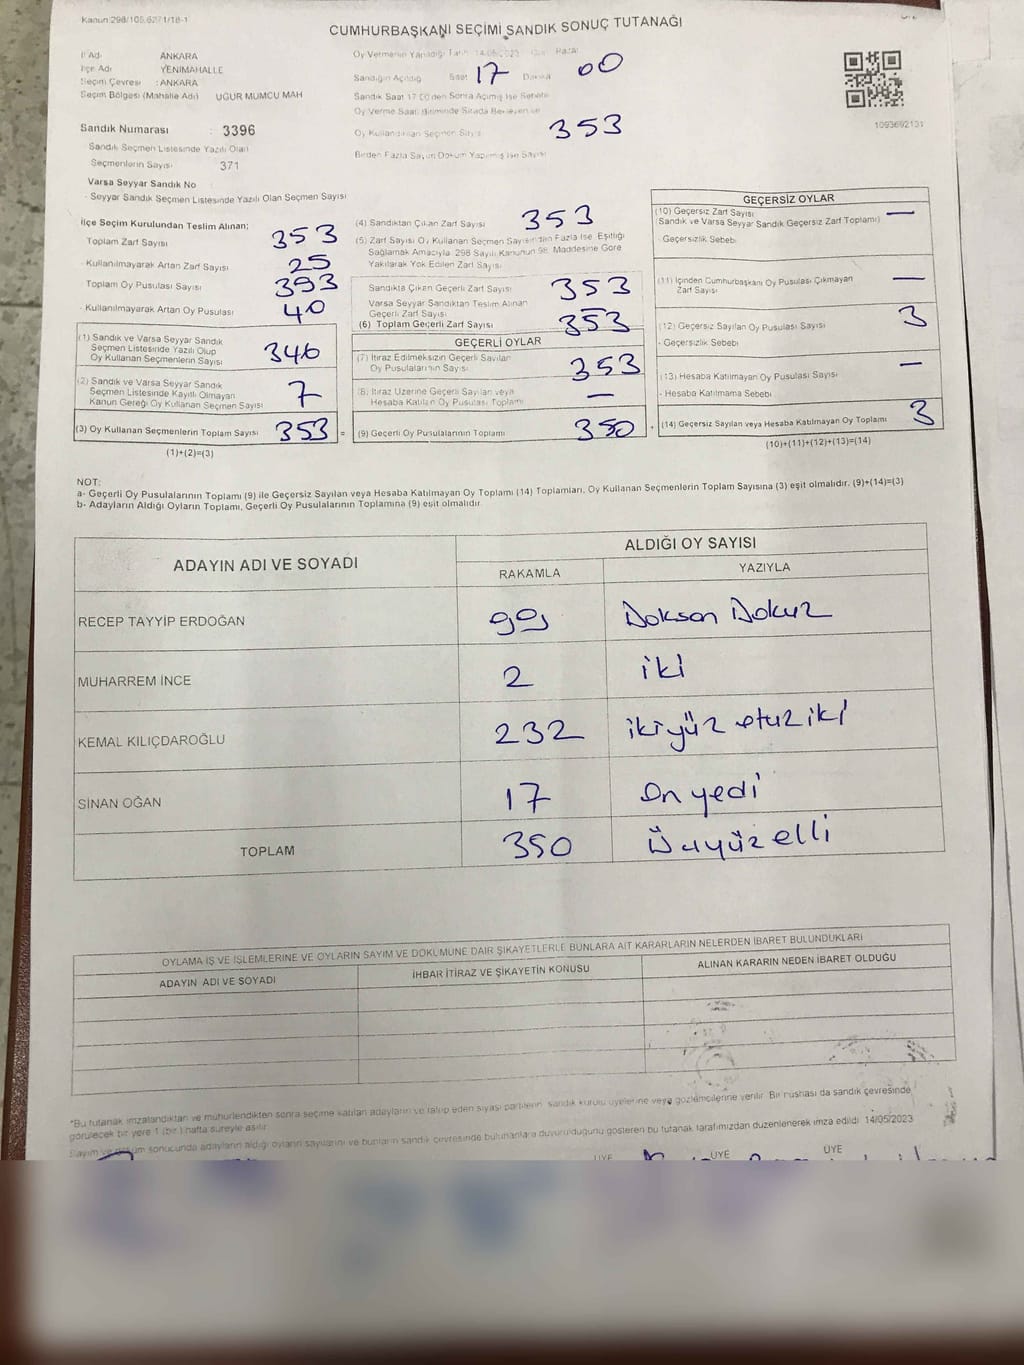 Kanun 298/105,6271/18-1
CUMHURBAŞKANI SEÇİMİ SANDIK SONUÇ TUTANAĞI
İl Adı ANKARA
İlçe Adı YENİMAHALLE
Seçim Çevresi : ANKARA
Seçim Bölgesi (Mahalle Adı) UĞUR MUMCU MAH
Sandık Numarası : 3396
Sandık Seçmen Listesinde Yazılı Olan
Seçmenlerin Sayısı 371
Varsa Seyyar Sandık No
- Seyyar Sandık Seçmen Listesinde Yazılı Olan Seçmen Sayısı
Oy Vermenin Yapıldığı Tarih 14/05/2023 Pazar
Sandığın Açıldığı Saat 17 Dakika 00
Sandık Saat 17 00'den Sonra Açılmış İse Sebebi
Oy Verme Saati Bitiminde Sırada Bekleyen ve
Oy Kullandırılan Seçmen Sayısı 353
Birden Fazla Sayım Döküm Yapılmış İse Sayısı
1093692131
İlçe Seçim Kurulundan Teslim Alınan;
Toplam Zarf Sayısı 353
- Kullanılmayarak Artan Zarf Sayısı 25
Toplam Oy Pusulası Sayısı 393
- Kullanılmayarak Artan Oy Pusulası 40
(1) Sandık ve Varsa Seyyar Sandık
Seçmen Listesinde Yazılı Olup
Oy Kullanan Seçmenlerin Sayısı 346
(2) Sandık ve Varsa Seyyar Sandık
Seçmen Listesinde Kayıtlı Olmayan
Kanun Gereği Oy Kullanan Seçmen Sayısı 7
(3) Oy Kullanan Seçmenlerin Toplam Sayısı 353 =
(1)+(2)=(3)
(4) Sandıktan Çıkan Zarf Sayısı 353
(5) Zarf Sayısı Oy Kullanan Seçmen Sayısından Fazla İse, Eşitliği
Sağlamak Amacıyla 298 Sayılı Kanunun 98. Maddesine Göre
Yakılarak Yok Edilen Zarf Sayısı
Sandıkta Çıkan Geçerli Zarf Sayısı 353
Varsa Seyyar Sandıktan Teslim Alınan
Geçerli Zarf Sayısı
(6) Toplam Geçerli Zarf Sayısı 353
GEÇERLİ OYLAR
(7) İtiraz Edilmeksizin Geçerli Sayılan
Oy Pusulalarının Sayısı 353
(8) İtiraz Üzerine Geçerli Sayılan veya
Hesaba Katılan Oy Pusulası Toplamı —
(9) Geçerli Oy Pusulalarının Toplamı 350 +
GEÇERSİZ OYLAR
(10) Geçersiz Zarf Sayısı —
(Sandık ve Varsa Seyyar Sandık Geçersiz Zarf Toplamı)
- Geçersizlik Sebebi
(11) İçinden Cumhurbaşkanı Oy Pusulası Çıkmayan
Zarf Sayısı —
(12) Geçersiz Sayılan Oy Pusulası Sayısı 3
- Geçersizlik Sebebi
(13) Hesaba Katılmayan Oy Pusulası Sayısı —
- Hesaba Katılmama Sebebi
(14) Geçersiz Sayılan veya Hesaba Katılmayan Oy Toplamı 3
(10)+(11)+(12)+(13)=(14)
NOT:
a- Geçerli Oy Pusulalarının Toplamı (9) ile Geçersiz Sayılan veya Hesaba Katılmayan Oy Toplamı (14) Toplamları, Oy Kullanan Seçmenlerin Toplam Sayısına (3) eşit olmalıdır. (9)+(14)=(3)
b- Adayların Aldığı Oyların Toplamı, Geçerli Oy Pusulalarının Toplamına (9) eşit olmalıdır.
ADAYIN ADI VE SOYADI ALDIĞI OY SAYISI
RAKAMLA YAZIYLA
RECEP TAYYİP ERDOĞAN 99 Doksan Dokuz
MUHARREM İNCE 2 iki
KEMAL KILIÇDAROĞLU 232 ikiyüz otuz iki
SİNAN OĞAN 17 On yedi
TOPLAM 350 Üçyüz elli
OYLAMA İŞ VE İŞLEMLERİNE VE OYLARIN SAYIM VE DÖKÜMÜNE DAİR ŞİKAYETLERLE BUNLARA AİT KARARLARIN NELERDEN İBARET BULUNDUKLARI
ADAYIN ADI VE SOYADI İHBAR İTİRAZ VE ŞİKAYETİN KONUSU ALINAN KARARIN NEDEN İBARET OLDUĞU
*Bu tutanak imzalandıktan ve mühürlendikten sonra seçime katılan adayların ve talep eden siyasi partilerin sandık kurulu üyelerine veya gözlemcilerine verilir. Bir nüshası da sandık çevresinde
görülecek bir yere 1 (bir) hafta süreyle asılır.
Sayım ve döküm sonucunda adayların aldığı oyların sayılarını ve bunların sandık çevresinde bulunanlara duyurulduğunu gösteren bu tutanak tarafımızdan düzenlenerek imza edildi. 14/05/2023
ÜYE ÜYE ÜYE